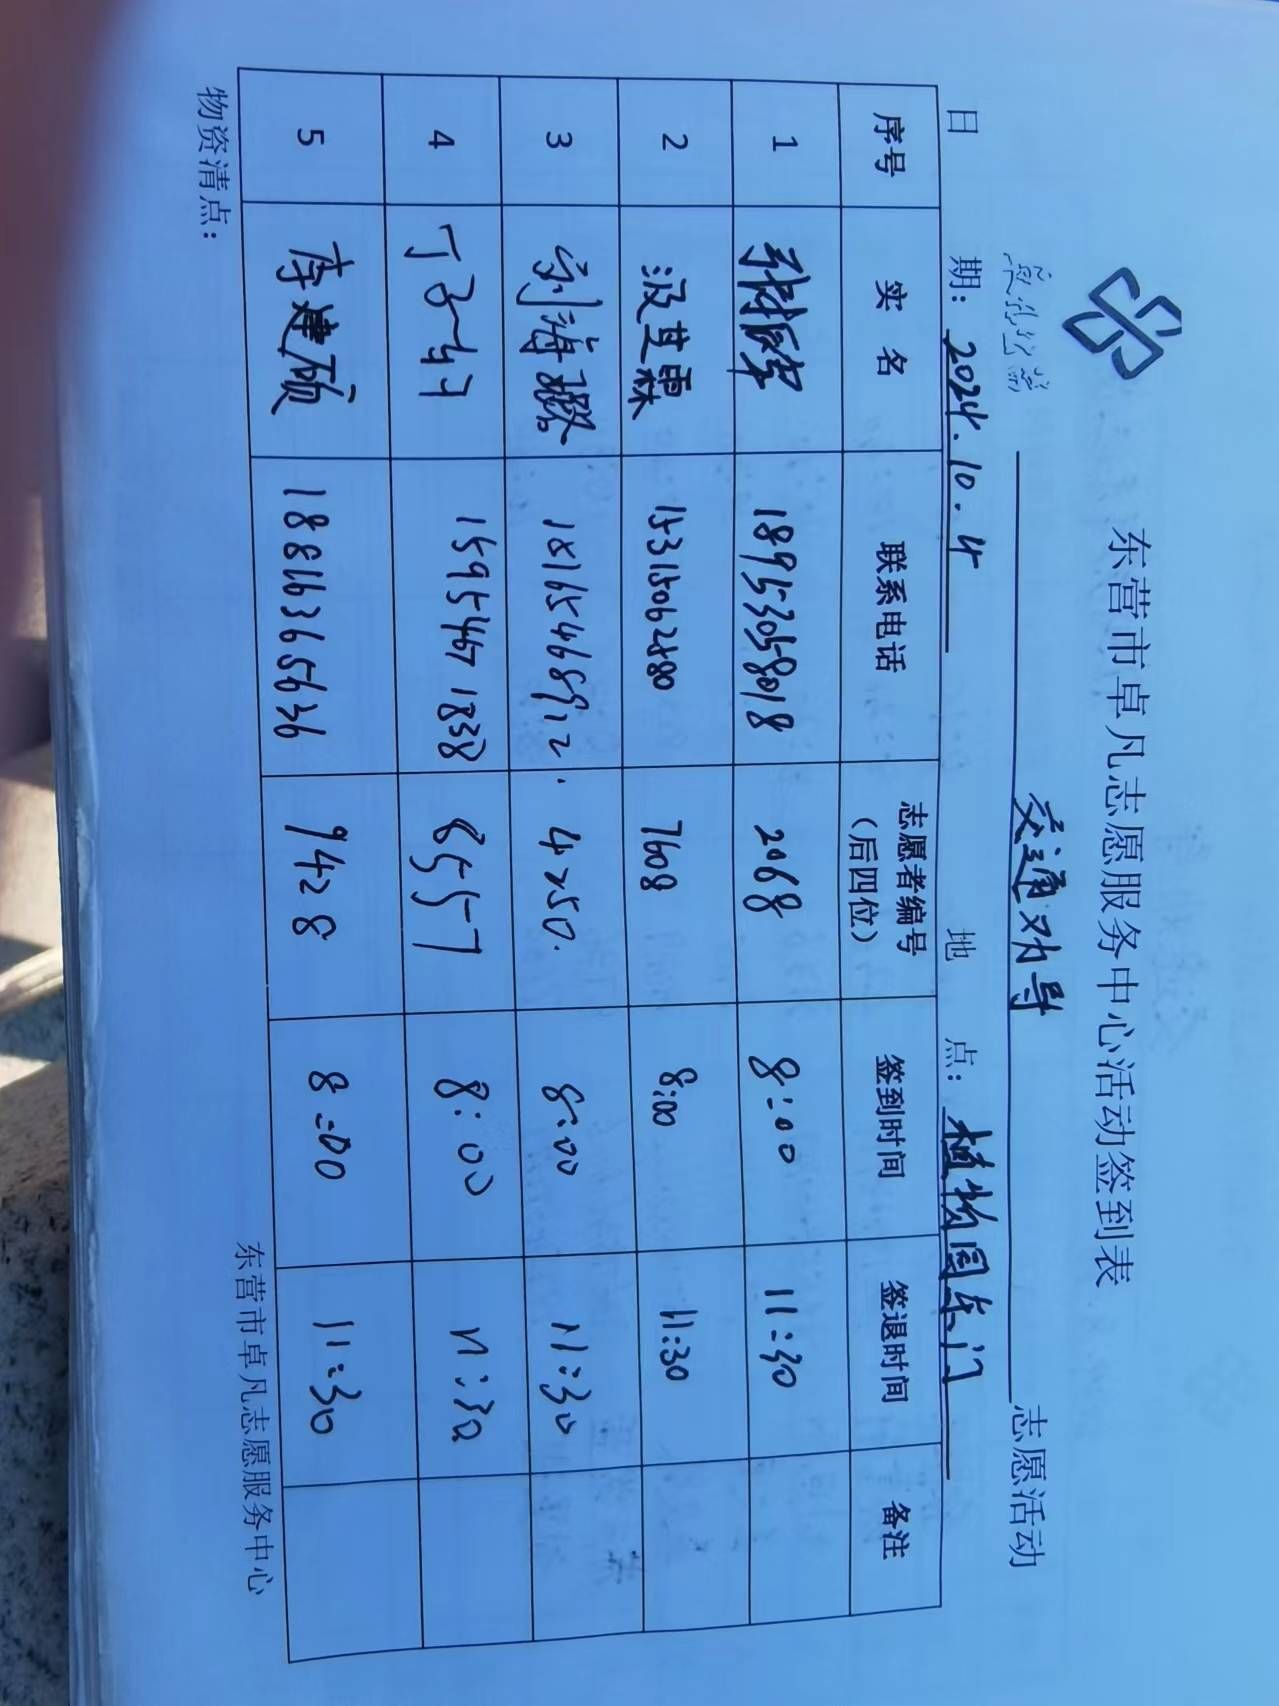 东营市卓凡志愿服务中心活动签到表
交通劝导 志愿活动
日 期: 2024.10.4 地 点: 植物园东门
序号 实 名 联系电话 志愿者编号(后四位) 签到时间 签退时间 备注
1 18953058018 2068 8:00 11:30
2 汲其霖 15315062880 7608 8:00 11:30
3 刘海璐 18165468912. 4250. 8:00 11:30
4 15954671838 8557 8:00 11:30
5 李建硕 18816365636 9428 8:00 11:30
物资清点: 东营市卓凡志愿服务中心